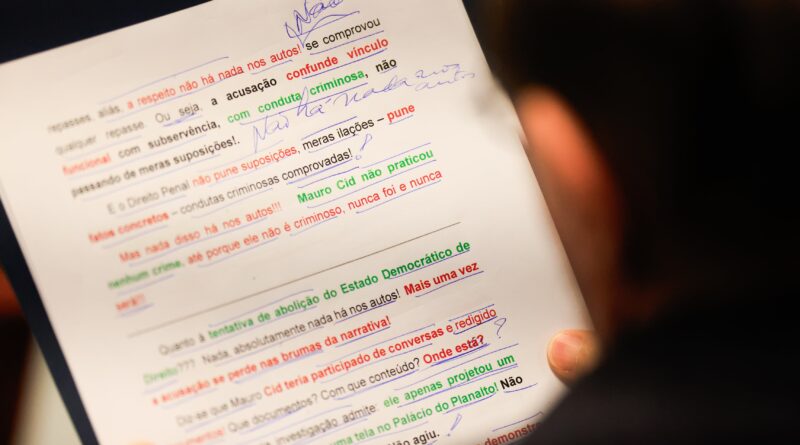 Não
repasses, aliás, a respeito não há nada nos autos! se comprovou
qualquer repasse. Ou seja, a acusação confunde vínculo
Não há nada nos autos
funcional com subserviência, com conduta criminosa, não
passando de meras suposições!.
E o Direito Penal não pune suposições, meras ilações – pune
fatos concretos – condutas criminosas comprovadas!
Mas nada disso há nos autos!!! Mauro Cid não praticou
nenhum crime, até porque ele não é criminoso, nunca foi e nunca
será!!
Quanto à tentativa de abolição do Estado Democrático de
Direito??? Nada, absolutamente nada há nos autos! Mais uma vez
a acusação se perde nas brumas da narrativa!
Diz-se que Mauro Cid teria participado de conversas e redigido
! Que documentos? Com que conteúdo? Onde está?
investigação admite: ele apenas projetou um
tela no Palácio do Planalto! Não
Não agiu.